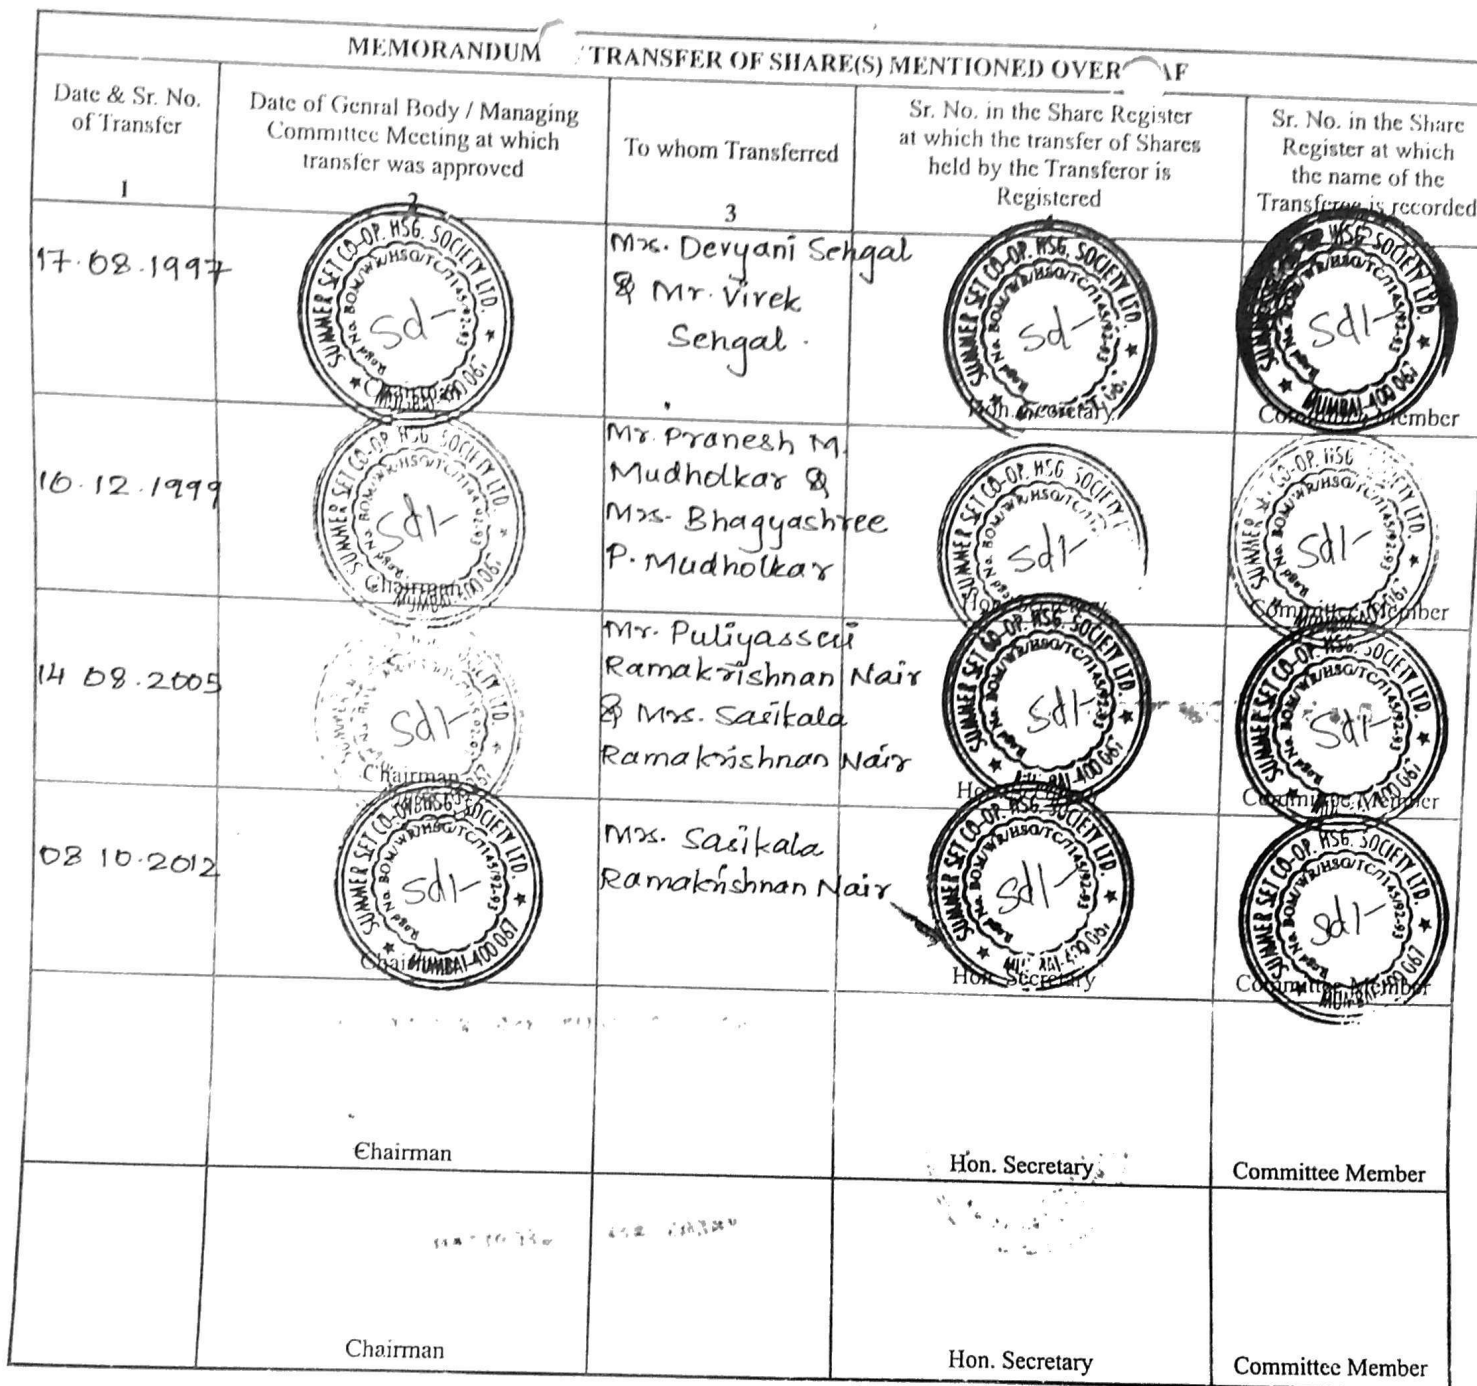 MEMORANDUM TRANSFER OF SHARE(S) MENTIONED OVER AF
Date & Sr. No.
of Transfer
1
Date of Genral Body / Managing
Committee Meeting at which
transfer was approved
2
To whom Transferred
3
Sr. No. in the Share Register
at which the transfer of Shares
held by the Transferor is
Registered
Sr. No. in the Share
Register at which
the name of the
Transferee is recorded
17.08.1997
SUMMER SET CO-OP. HSG. SOCIETY LTD.
Regd No. BOM/WR/HSG/TC/7145/92-93
MUMBAI-400 067
sd-
Chairman
Mrs. Devyani Sehgal
& Mr. Virek
Sehgal.
SUMMER SET CO-OP. HSG. SOCIETY LTD.
Regd No. BOM/WR/HSG/TC/7145/92-93
sd-
Hon. Secretary
SUMMER SET CO-OP. HSG. SOCIETY LTD.
Regd No. BOM/WR/HSG/TC/7145/92-93
MUMBAI-400 067
sd/-
Committee Member
16.12.1999
SUMMER SET CO-OP. HSG. SOCIETY LTD.
sd/-
Chairman
Mr. Pranesh M.
Mudholkar &
Mrs. Bhagyashree
P. Mudholkar
SUMMER SET CO-OP. HSG. SOCIETY
sd/-
Hon. Secretary
CO-OP. HSG. SOCIETY LTD.
sd/-
Committee Member
14 08.2005
sd/-
Chairman
Mr. Puliyasseri
Ramakrishnan Nair
& Mrs. Sasikala
Ramakrishnan Nair
SUMMER SET CO-OP. HSG. SOCIETY LTD.
Regd No. BOM/WR/HSG/TC/7145/92-93
sd/-
SUMMER SET CO-OP. HSG. SOCIETY LTD.
Regd No. BOM/WR/HSG/TC/7145/92-93
sd/-
Committee Member
08 10.2012
SUMMER SET CO-OP. HSG. SOCIETY LTD.
Regd No. BOM/WR/HSG/TC/7145/92-93
MUMBAI-400 067
sd/-
Mrs. Sasikala
Ramakrishnan Nair
SUMMER SET CO-OP. HSG. SOCIETY LTD.
Regd No. BOM/WR/HSG/TC/7145/92-93
sd/-
Hon. Secretary
SUMMER SET CO-OP. HSG. SOCIETY LTD.
Regd No. BOM/WR/HSG/TC/7145/92-93
MUMBAI-400 067
sd/-
Committee Member
Chairman
Hon. Secretary
Committee Member
Chairman
Hon. Secretary
Committee Member